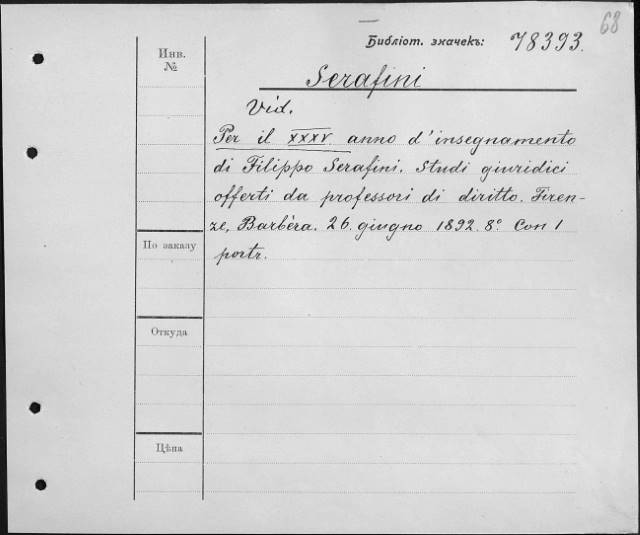 68
Библіот. значекъ: 78393.
Инв.
№
Serafini
Vid.
Per il XXXV anno d'insegnamento
di Filippo Serafini. Studi giuridici
offerti da professori di diritto. Firen-
ze, Barbéra. 26 giugno 1892. 8° Con 1
portr.
По заказу
Откуда
Цѣна